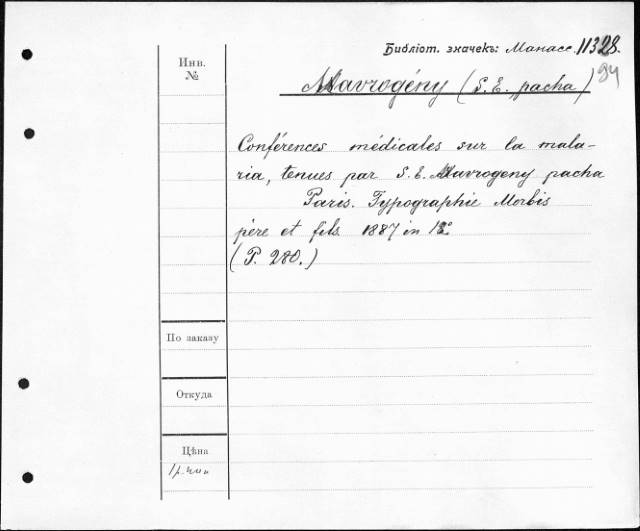 Библіот. значекъ: Манасс. 11328.
94
Инв.
№
Mavrogény (S. E. pacha)
Conférences médicales sur la mala-
ria, tenues par S. E. Mavrogeny pacha
Paris. Typographie Morbis
père et fils 1887 in 12º
(P. 280.)
По заказу
Откуда
Цѣна